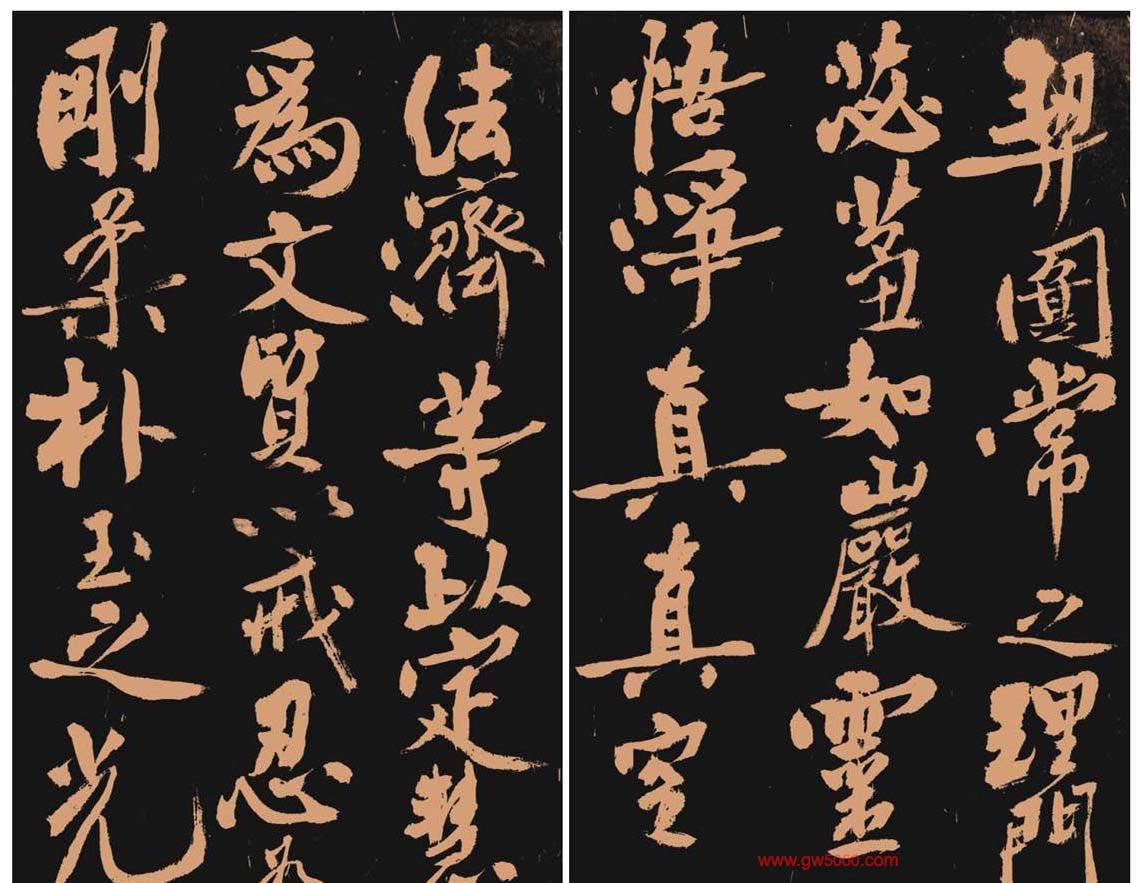 契圓常之理門
苾蒭如山嚴靈
悟淨真真空
法濟等以定慧
為文質以戒忍為
剛柔朴玉之光
www.gw5000.com